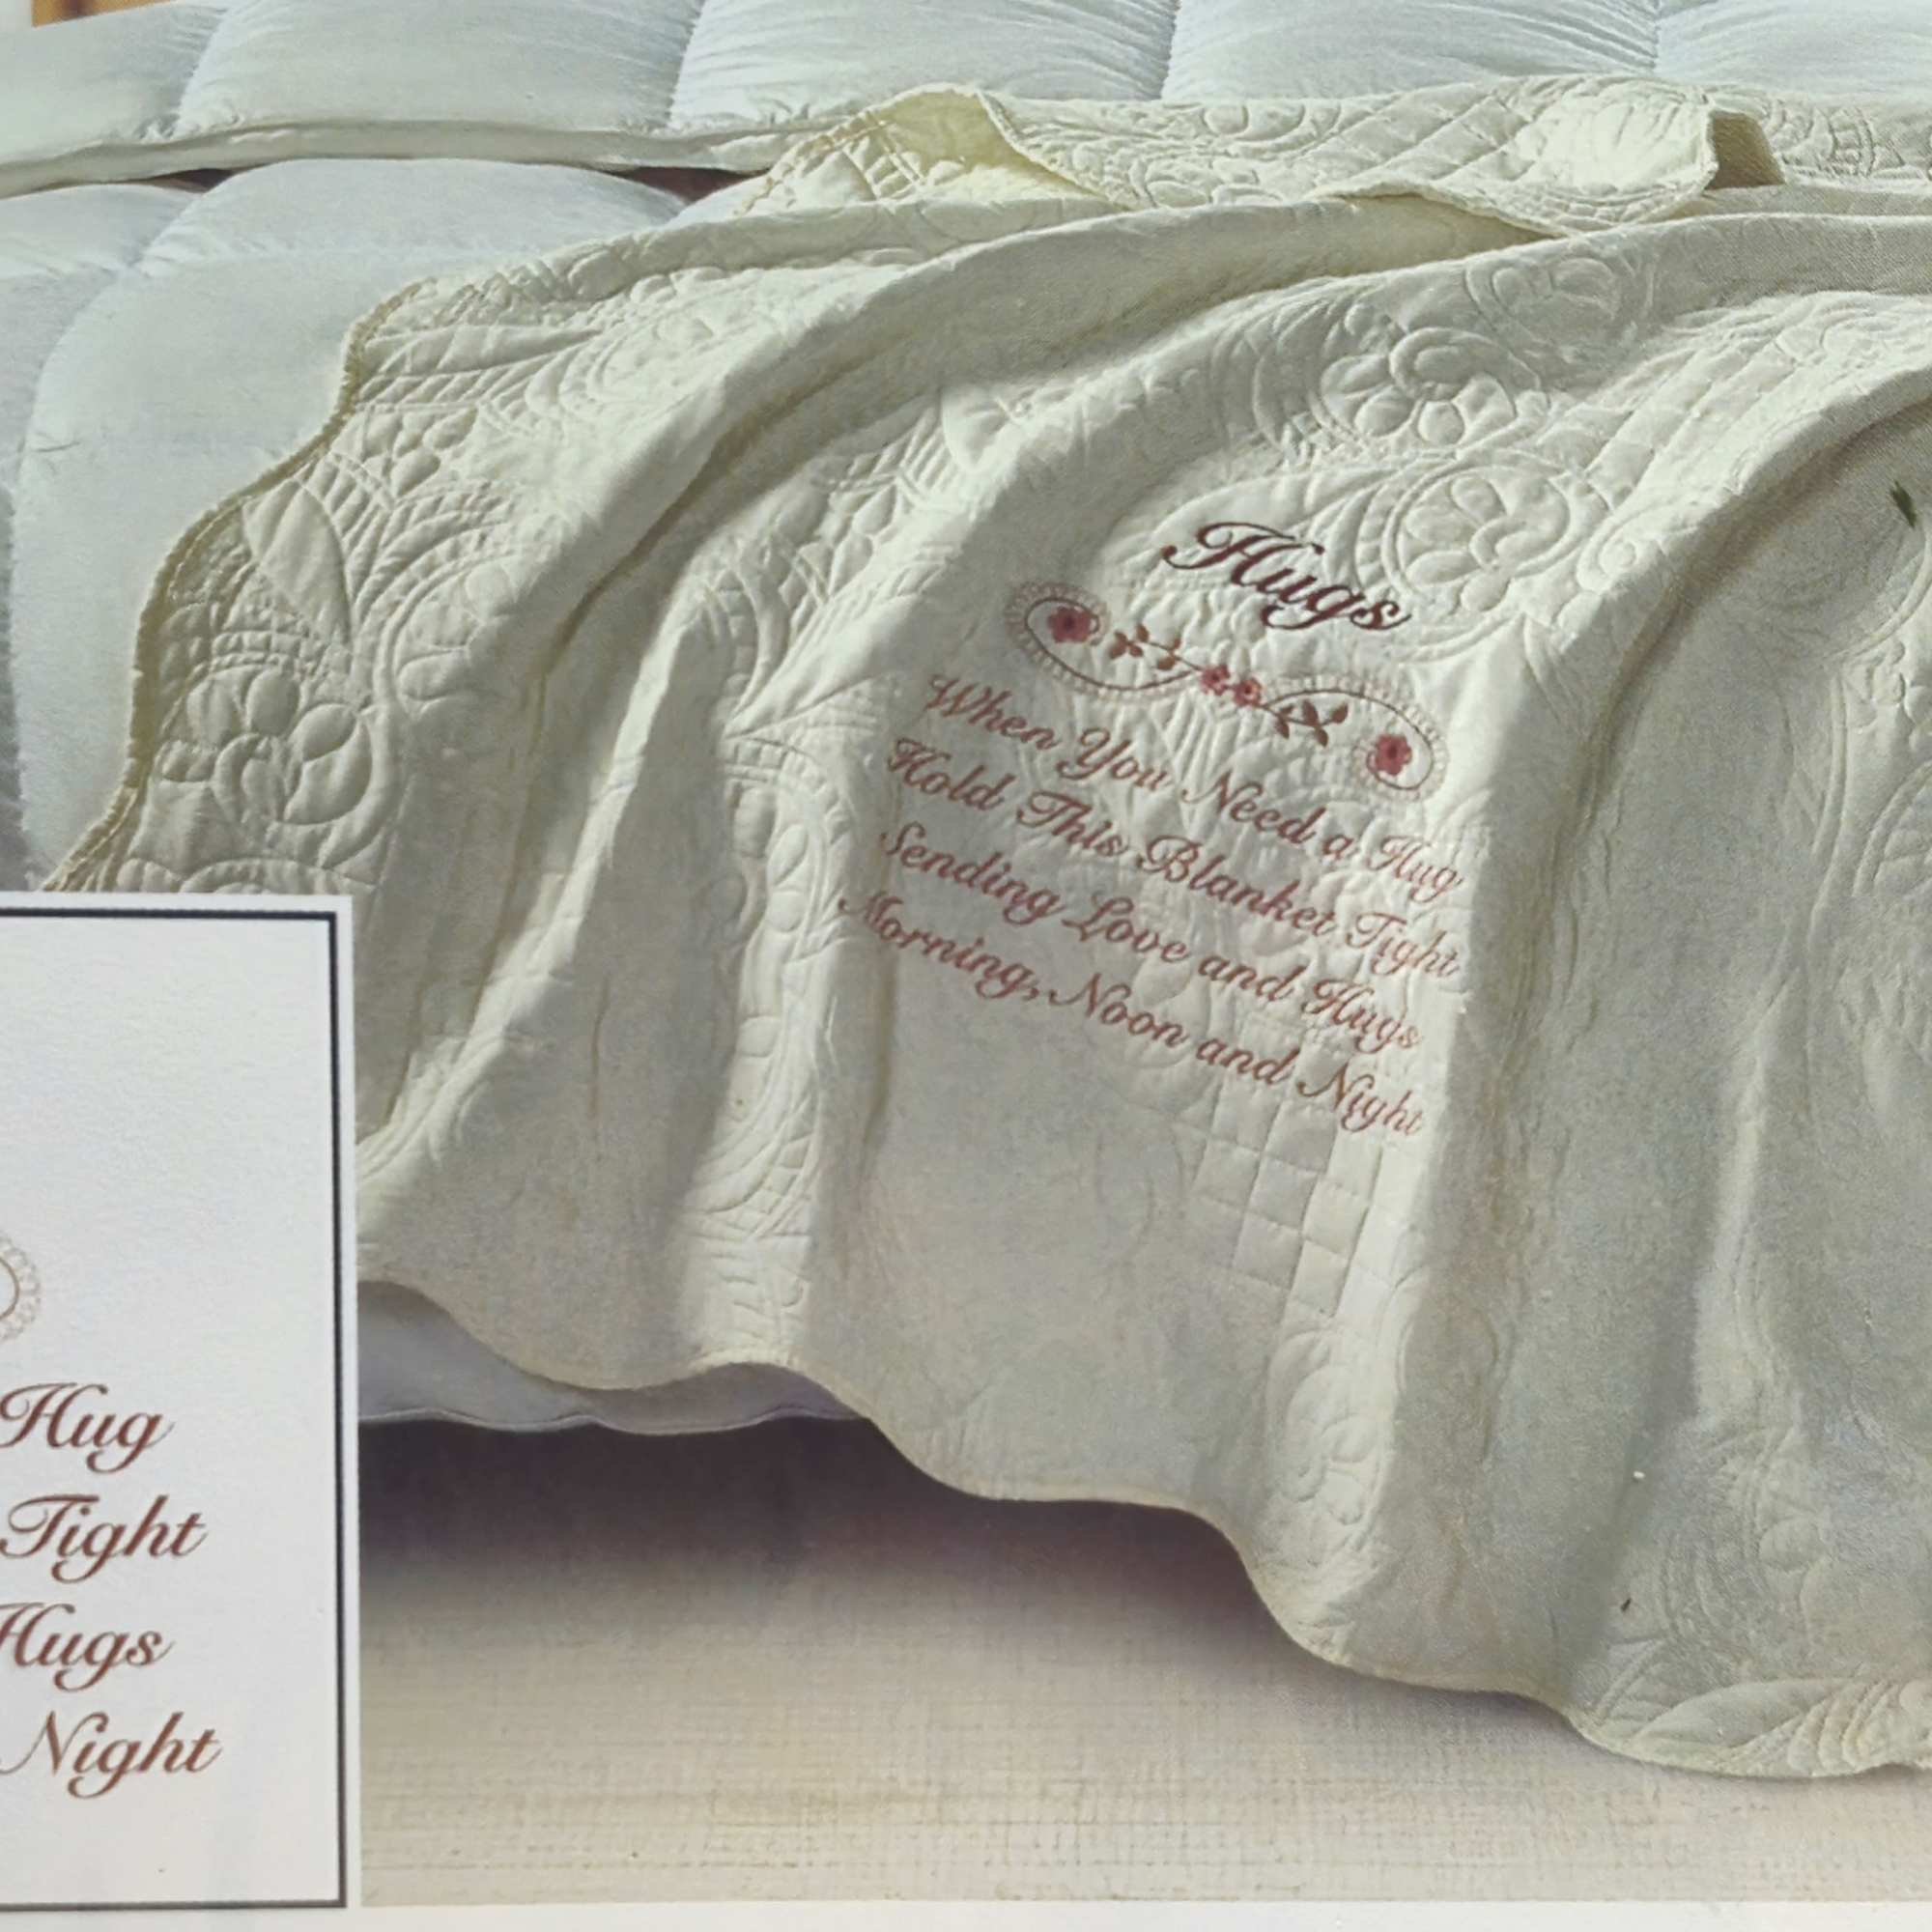 Hugs
When You Need a Hug
Hold This Blanket Tight
Sending Love and Hugs
Morning, Noon and Night
Hug
Tight
Hugs
Night